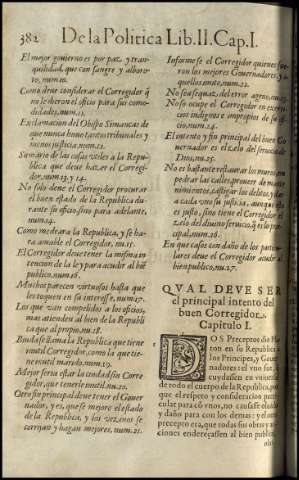 382 De la Politica Lib. II. Cap. I.
El mejor gouierno es por paz, y tran-
quilidad, que con sangre y alboro-
to, num. 10.
Como deue considerar el Corregidor q̃
no le dieron el oficio para sus como-
didades, num. 11.
Exclamacion del Obispo Simancas de
que nunca huuo tantos tribunales y
menos justicia, num. 12.
Sumario de las cosas vtiles a la Repu-
blica que deue hazer el Corregi-
dor, num. 13. y 14.
No solo deue el Corregidor procurar
el buen estado de la Republica du-
rante su oficio, sino para adelante,
num. 14.
Como medrara la Republica, y se ha-
ra amable el Corregidor, nu. 15.
El Corregidor deue tener la misma in
tencion de la ley para acudir al biē
publico, num. 16.
Muchos parecen virtuosos hasta que
les toquen en su interesse, num. 17.
Los que van compelidos a los oficios,
mas atienden al bien de la Republi
ca que al propio, nu. 18.
Biuda se llama la Republica que tiene
inutil Corregidor, como la que tie-
ne inutil marido, num. 19.
Mejor seria estar la ciudad sin Corre
gidor, que tenerle inutil, nu. 20.
Otro fin principal deue tener el Gouer
nador, y es, que se mejore el estado
de la Republica, y los vezinos se
corrijan y hagan mejores, num. 21.
Informese el Corregidor quienes fue-
ron los mejores Gouernadores, y a-
quellos imite, num. 22.
No sea sequaz del error ageno, nu. 23.
No se ocupe el Corregidor en exerci-
cios indignos e impropios de su ofi-
cio, num. 24.
El intento y fin principal del buen Go
uernador es el zelo del seruicio de
Dios, nu. 25.
No es bastante restaurar los muros, em
pedrar las calles, proueer de mante
nimientos, castigar los delitos, y dar
a cada vno su justicia, aunque esto
es justo, sino tiene el Corregidor el
zelo del diuino seruicio, q̃ es lo prin-
cipal, nu. 26.
En que casos con daño de los particu-
lares deue el Corregidor acudir al
bien publico, nu. 27.
QVAL DEVE SER
el principal intento del
buen Corregidor.
Capitulo I.
DOS Preceptos dio Pla-
ton en su Republica à
los Principes, y Gouer-
nadores: el vno fue, que
cuydassen en vniuersal
de todo el cuerpo de la Republica, por
que el respeto y consideracion parti-
cular para cõ vnos, no causasse oluido
y daño para con los demas: y el otro
precepto era, que todas sus obras y ac-
ciones endereçassen al bien publico,